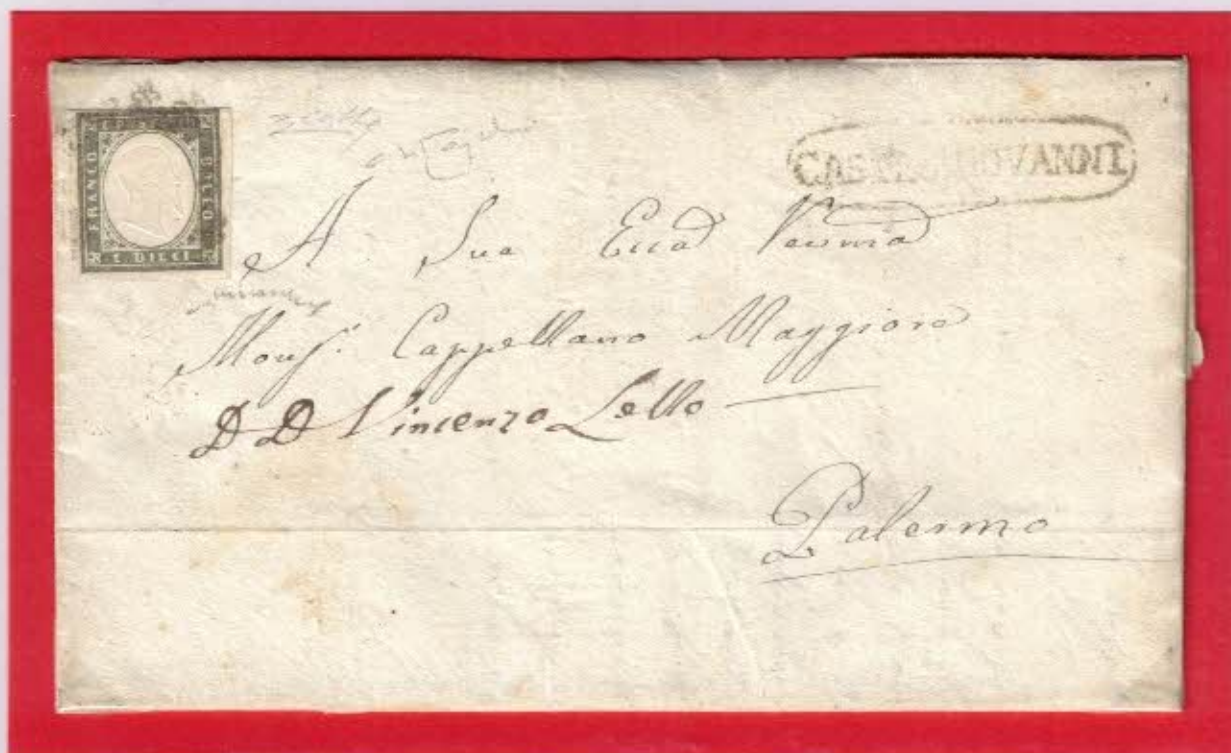 FRANCO
BOLLO
C. DIECI
CASTROGIOVANNI
A Sua Ecc.a
Mons.r Cappellano Maggiore
D D Vincenzo Lello
Palermo